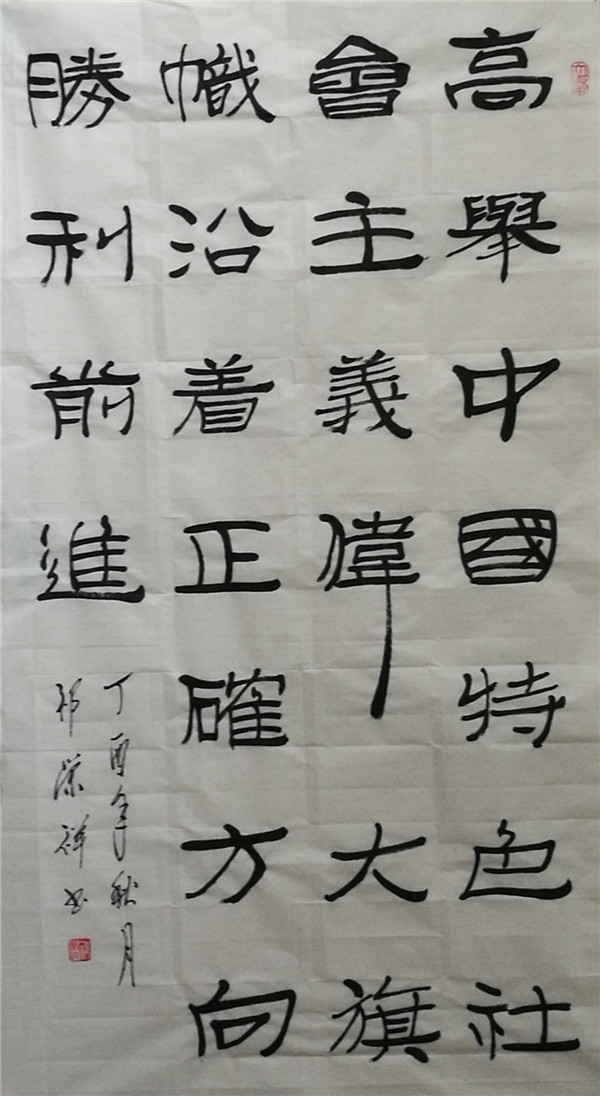 高舉中國特色社
會主義偉大旗
幟沿着正確方向
勝利前進
丁酉年秋月
祁榮祥书